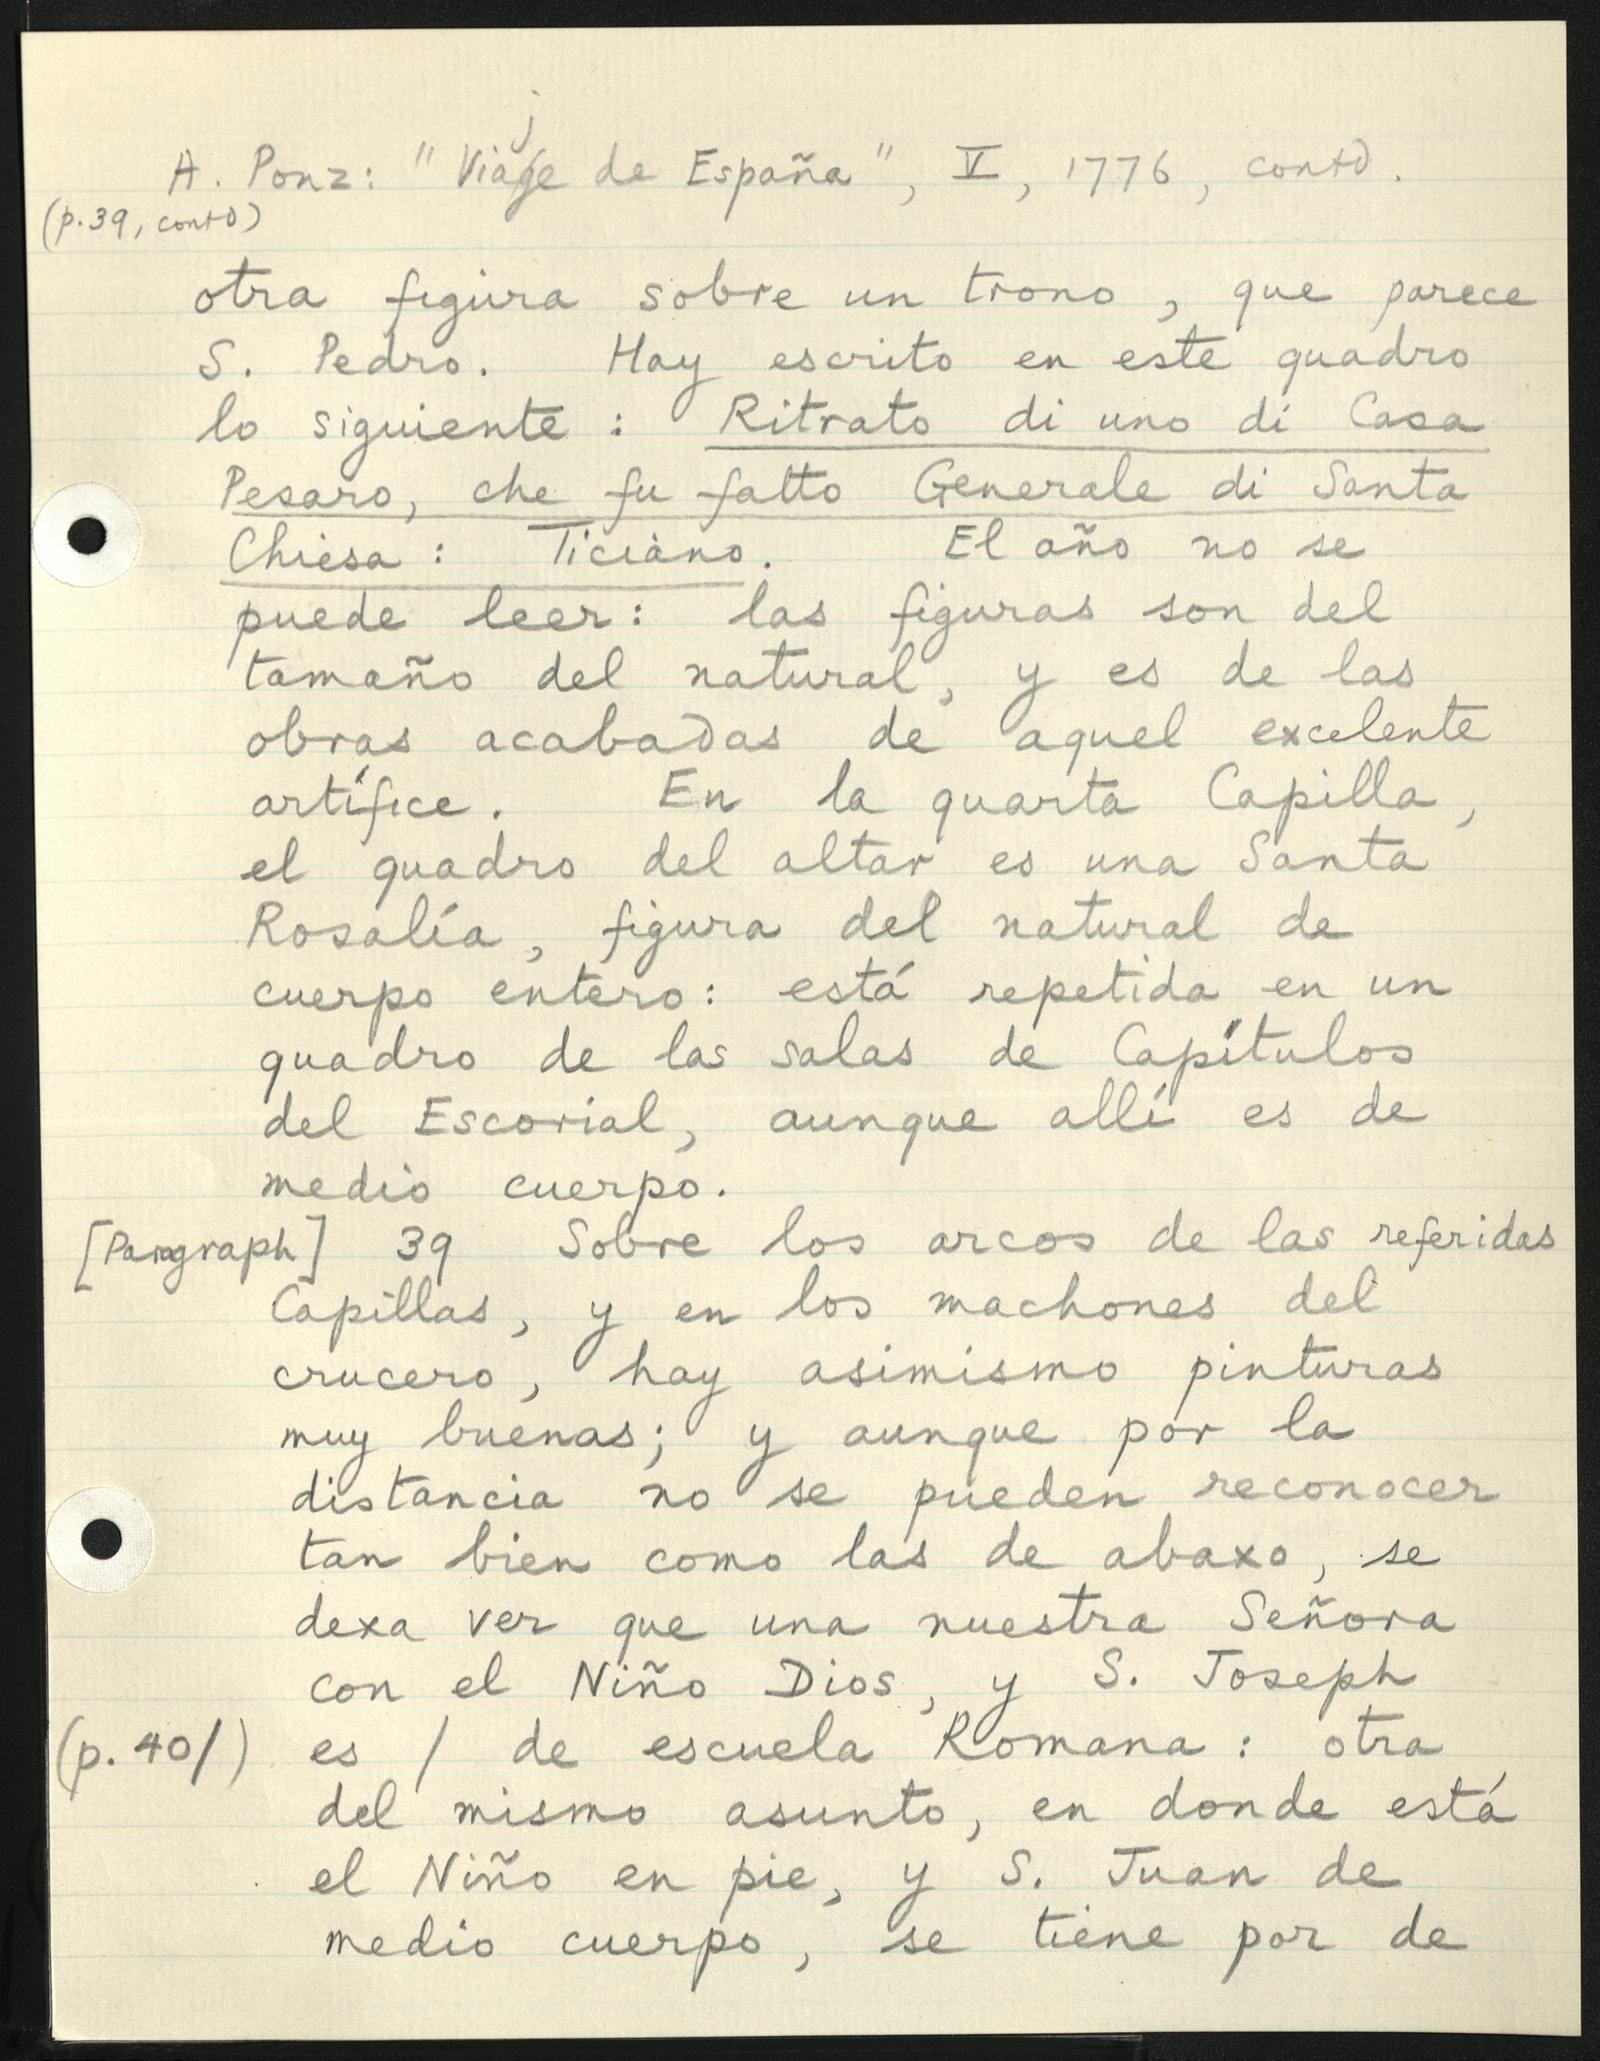 A. Ponz: "Viaje de España", V, 1776, contd.
(p.39, contd)
otra figura sobre un trono, que parece
S. Pedro. Hay escrito en este quadro
lo siguiente: Ritrato di uno di Casa
Pesaro, che fu fatto Generale di Santa
Chiesa: Ticiano. El año no se
puede leer: las figuras son del
tamaño del natural, y es de las
obras acabadas de aquel excelente
artífice. En la quarta Capilla,
el quadro del altar es una Santa
Rosalía, figura del natural de
cuerpo entero: está repetida en un
quadro de las salas de Capítulos
del Escorial, aunque allí es de
medio cuerpo.
[Paragraph] 39 Sobre los arcos de las referidas
Capillas, y en los machones del
crucero, hay asimismo pinturas
muy buenas; y aunque por la
distancia no se pueden reconocer
tan bien como las de abaxo, se
dexa ver que una nuestra Señora
con el Niño Dios, y S. Joseph
(p. 40/) es / de escuela Romana: otra
del mismo asunto, en donde está
el Niño en pie, y S. Juan de
medio cuerpo, se tiene por de